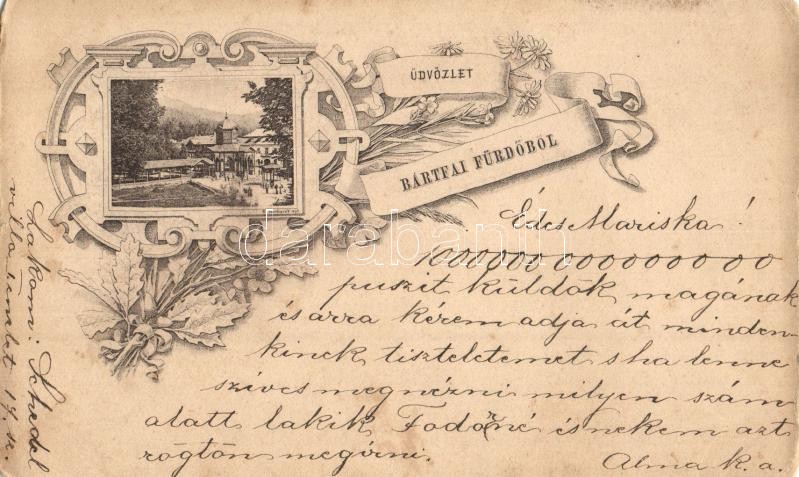 ÜDVÖZLET
BÁRTFAI FÜRDŐBŐL
Édes Mariska!
1000000000000000
puszit küldök magának
és arra kérem adja át minden-
kinek tiszteletemet s ha lenne
szíves megnézni milyen szám
alatt lakik Fodorné és nekem azt
rögtön megírni.
Alma k. a.
Lakom: Schedel
villa emelet 14. sz.
darabanth.com